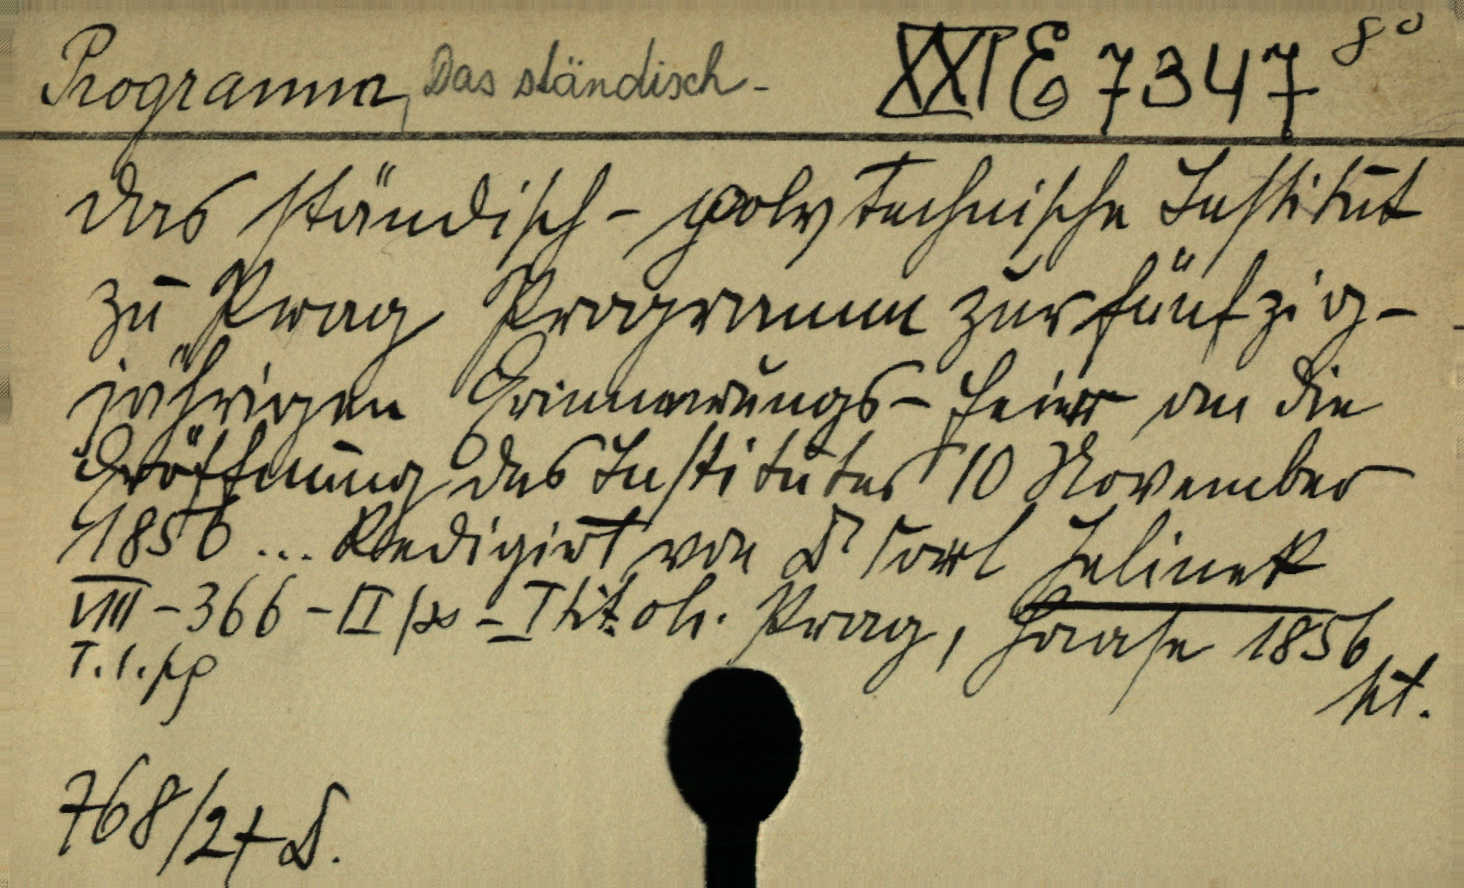 Programm, Das ständisch- XXI E 7347 8°
Das ständisch-polytechnische Institut
zu Prag Programm zur fünfzig-
jährigen Erinnerungs-Feier an die
Eröffnung des Institutes 10 November
1856 ... Redigirt von Dr Carl Jelinek
VIII-366-II - I Prag, Haase 1856
768/27 D.